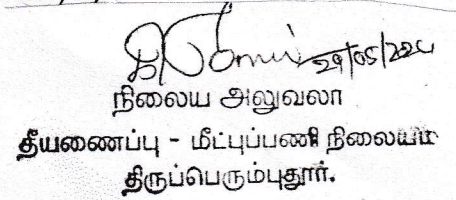 29/05/2024
நிலைய அலுவலா
தீயணைப்பு - மீட்புப்பணி நிலையம்
திருப்பெரும்புதூர்.